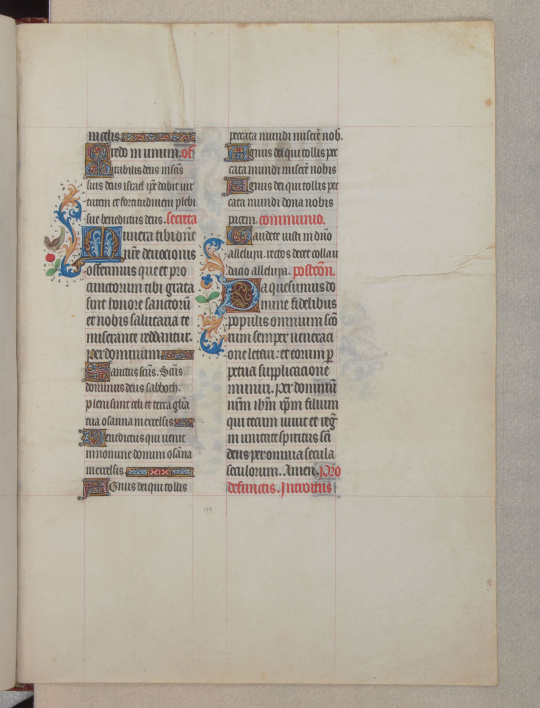 in celis
Credo in unum. off
Mirabilis deus in scīs
suis deus israel ip̄e dabit uir
tutem et fortitudinem plebi
sue benedictus deus. secreta
Munera tibi dn̄e
nr̄e deuocionis
offerimus que et pro
cunctorum tibi grata
sint honore sanctorū
et nobis salutaria te
miserante reddantur.
per dominum
Sanctus scūs. Scūs
dominus deus sabboth.
pleni sunt celi et terra glīa
tua osanna in excelsis
Benedictus qui uenit
in nomine domini osāna
in excelsis
Agnus dei qui tollis
peccata mundi miserē nob.
Agnus dei qui tollis pec
cata mundi miserē nobis
Agnus dei qui tollis pec
cata mundi dona nobis
pacem. communio.
Gaudete iusti in dn̄o
alleluya. rectos decet collau
dacio alleluya. postcōn.
Da quesumus do
mine fidelibus
populis omnium scō
rum semper ueneraci
one letari: et eorum p̄
petua supplicacione
muniri. per dominū
nr̄m ihm̄ xp̄m filium
qui tecum uiuit et reḡ
in unitate spiritus sc̄i
deus per omnia secula
seculorum. Amen. Pro
defunctis. Introitus